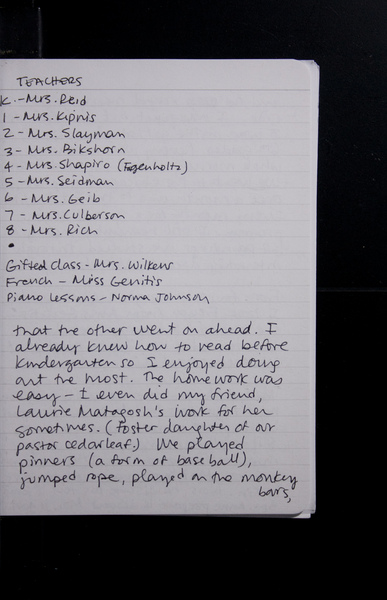 TEACHERS
K. - Mrs. Reid
1 - Mrs. Kipnis
2 - Mrs. Slayman
3 - Mrs. Bikshorn
4 - Mrs. Shapiro (Fagenholtz)
5 - Mrs. Seidman
6 - Mrs. Geib
7 - Mrs. Culberson
8 - Mrs. Rich
•
Gifted Class - Mrs. Wilkens
French - Miss Genitis
Piano Lessons - Norma Johnson
that the other went on ahead. I
already knew how to read before
kindergarten so I enjoyed doing
art the most. The homework was
easy - I even did my friend,
Laurie Matagosh's work for her
sometimes. (foster daughter of our
pastor Cedarleaf.) We played
pinners (a form of baseball),
jumped rope, played on the monkey
bars,